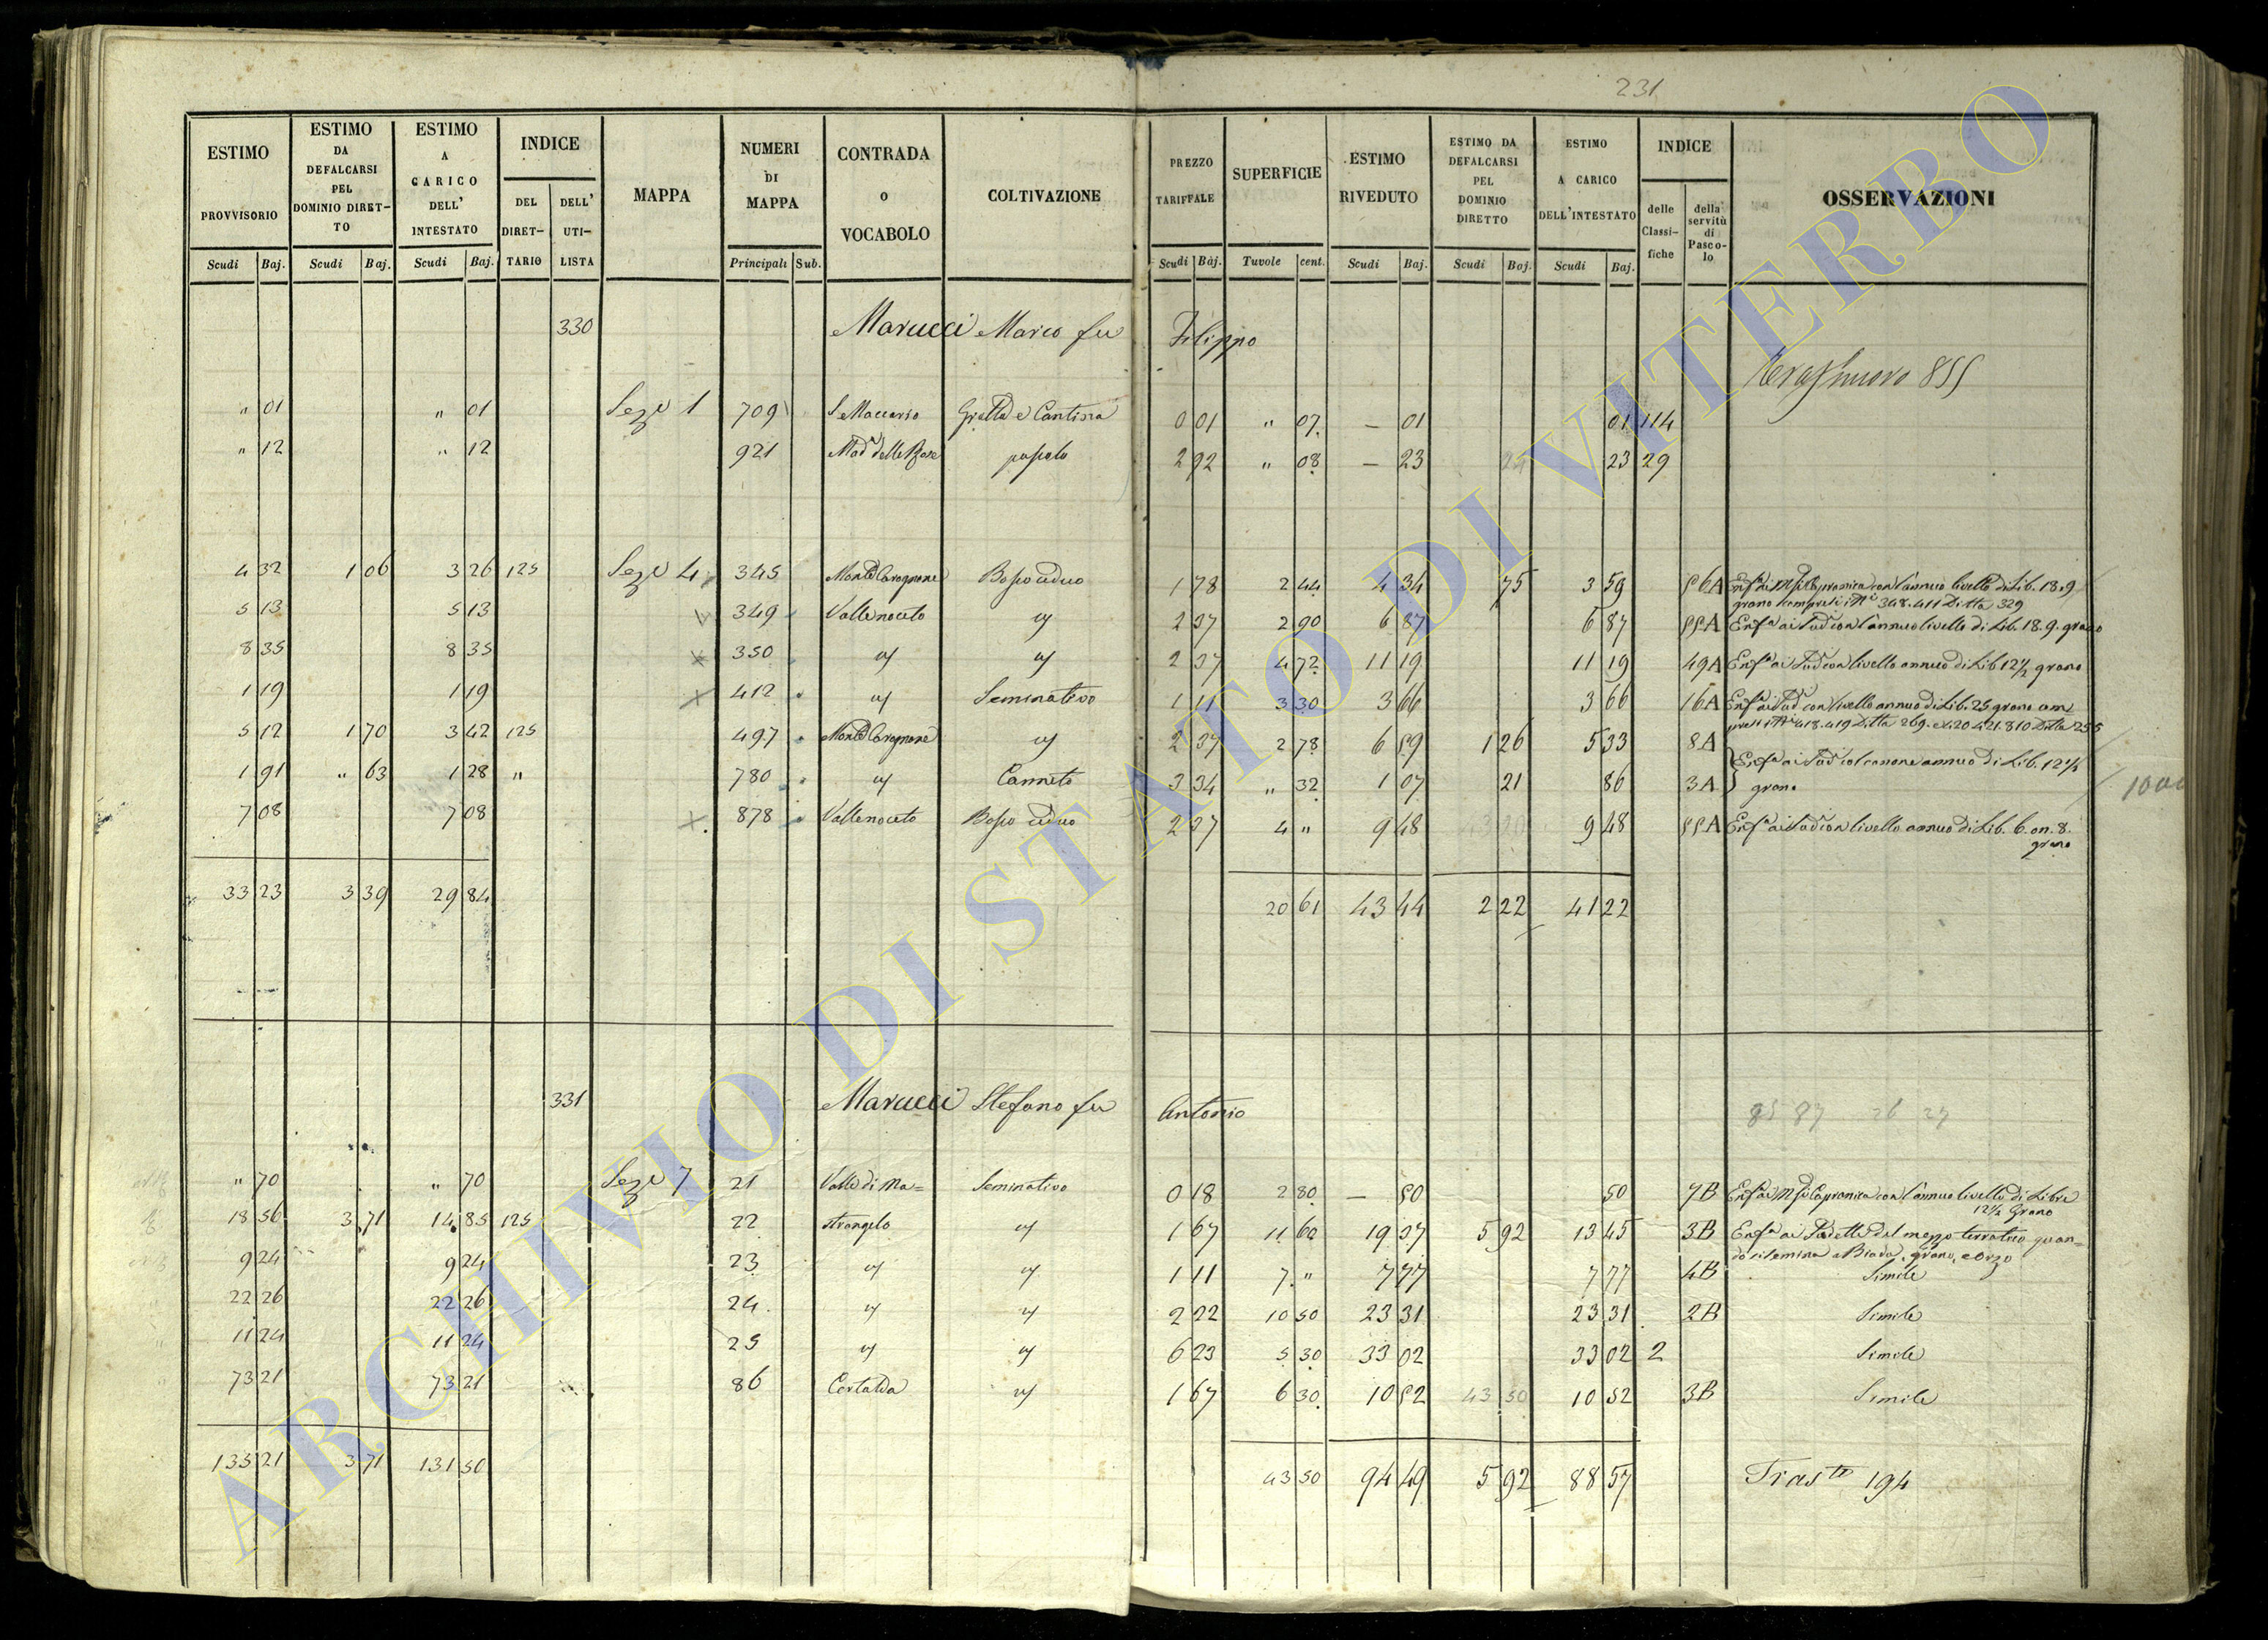 231
ESTIMO PROVVISORIO Scudi Baj.
ESTIMO DA DEFALCARSI PEL DOMINIO DIRET-TO Scudi Baj.
ESTIMO A CARICO DELL' INTESTATO Scudi Baj.
INDICE DEL DIRET-TARIO DELL' UTI-LISTA
MAPPA
NUMERI DI MAPPA Principali Sub.
CONTRADA o VOCABOLO
COLTIVAZIONE
PREZZO TARIFFALE Scudi Baj.
SUPERFICIE Tavole cent.
ESTIMO RIVEDUTO Scudi Baj.
ESTIMO DA DEFALCARSI PEL DOMINIO DIRETTO Scudi Baj.
ESTIMO A CARICO DELL'INTESTATO Scudi Baj.
INDICE delle Classi-fiche della servitù di Pasco-lo
OSSERVAZIONI
330 Marucci Marco fu Filippo
855
" 01 " 01 Sez.e 1 709 Grotta e Cantina 0 01 " 07 — 01 01 114
" 12 " 12 921 Mad.a delle Rose pascolo 2 92 " 08 — 23 23 29
4 32 1 06 3 26 125 Sez.e 4 345 Monte Bosco ceduo 1 78 2 44 4 34 75 3 59 56A con l'annuo livello di Lib. 18.9
grano compresi i N.i 348.411 Ditta 329
5 13 5 13 349 Vallenoceto " 2 37 2 90 6 87 6 87 55A Enf.a ai Sud.i con l'annuo livello di Lib. 18.9. grano
8 35 8 35 350 " " 2 37 4 72 11 19 11 19 49A Enf.a ai Sud.i con livello annuo di Lib 12½ grano
1 19 1 19 412 " Seminativo 1 11 3 30 3 66 3 66 16A Enf.a ai Sud.i con livello annuo di Lib. 25 grano com
presi i N.i 418.419 Ditta 269. e 420 421.810 Ditta 255
5 12 1 70 3 42 125 497 Monte " 2 37 2 78 6 59 1 26 5 33 8A
1 91 " 63 1 28 " 780 " Canneto 3 34 " 32 1 07 21 86 3A Enf.a ai Sud.i col canone annuo di Lib. 12½
grano
7 08 7 08 878 Vallenoceto Bosco ceduo 2 37 4 " 9 48 9 48 55A Enf.a ai Sud.i con livello annuo di Lib. 6. on. 8.
grano
33 23 3 39 29 84 20 61 43 44 2 22 41 22
331 Marucci Stefano fu Antonio
85 87 26 27
" 70 " 70 Sez.e 7 21 Valle di Ma= Seminativo 0 18 2 80 — 50 50 7B Enf.a ai M di Capranica con l'annuo livello di Libre
12½ Grano
18 56 3 71 14 85 125 22 strangelo " 1 67 11 60 19 37 5 92 13 45 3B Enf.a ai Sudetti del mezzo terratico quan=
do si semina a Biada, grano, e orzo
9 24 9 24 23 " " 1 11 7 " 7 77 7 77 4B Simile
22 26 22 26 24 " " 2 22 10 50 23 31 23 31 2B Simile
11 24 11 24 25 " " 6 23 5 30 33 02 33 02 2 Simile
73 21 73 21 86 " 1 67 6 30 10 52 43 50 10 52 3B Simile
135 21 3 71 131 50 43 50 94 49 5 92 88 57 Trasto 194
ARCHIVIO DI STATO DI VITERBO